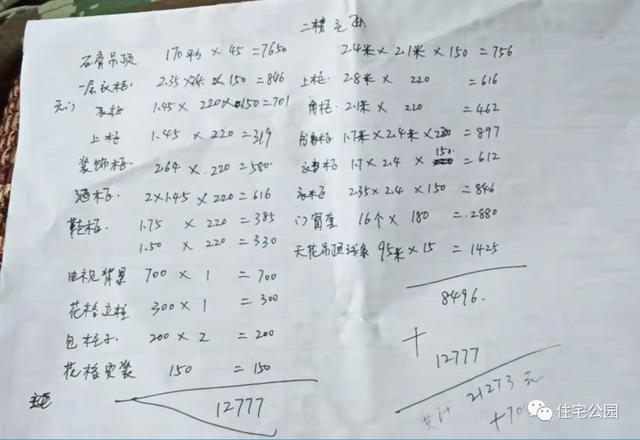 石膏吊顶 170平 × 45 = 7650
一层衣柜 2.35 × 2.4 × 150 = 846
无门 1.45 × 220 × 150 = 701
上柜 1.45 × 220 = 319
装饰柜 2.64 × 220 = 580
酒柜 2×1.45 × 220 = 616
鞋柜 1.75 × 220 = 385
1.50 × 220 = 330
电视背景 700 × 1 = 700
花格立柱 300 × 1 = 300
包柱子 200 × 2 = 200
花格安装 150 = 150
12777
二楼主卧
2.4米 × 2.1米 × 150 = 756
上柜 2.8米 × 220 = 616
角柜 2.1米 × 220 = 462
1.7米 × 2.4米 × 220 = 897
衣柜 1.7 × 2.4 × 150 = 612
衣柜 2.35 × 2.4 × 150 = 846
门窗套 16个 × 180 = 2880
天花吊顶线条 95米 × 15 = 1425
8496
+
12777
共计 21273元
+70
住宅公园